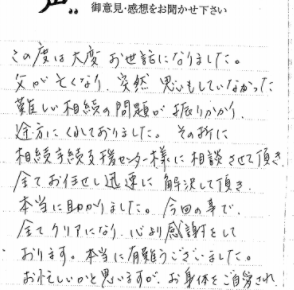 声!!
御意見・感想をお聞かせ下さい
この度は大変お世話になりました。
父が亡くなり、突然思いもしていなかった
難しい相続の問題が振りかかり、
途方にくれておりました。その折に
相続手続支援センター様に相談させて頂き
全てお任せし迅速に解決して頂き
本当に助かりました。今回の事で、
全てクリアになり、心より感謝をして
おります。本当に有難うございました。
お忙しいかと思いますが、お身体をご自愛され